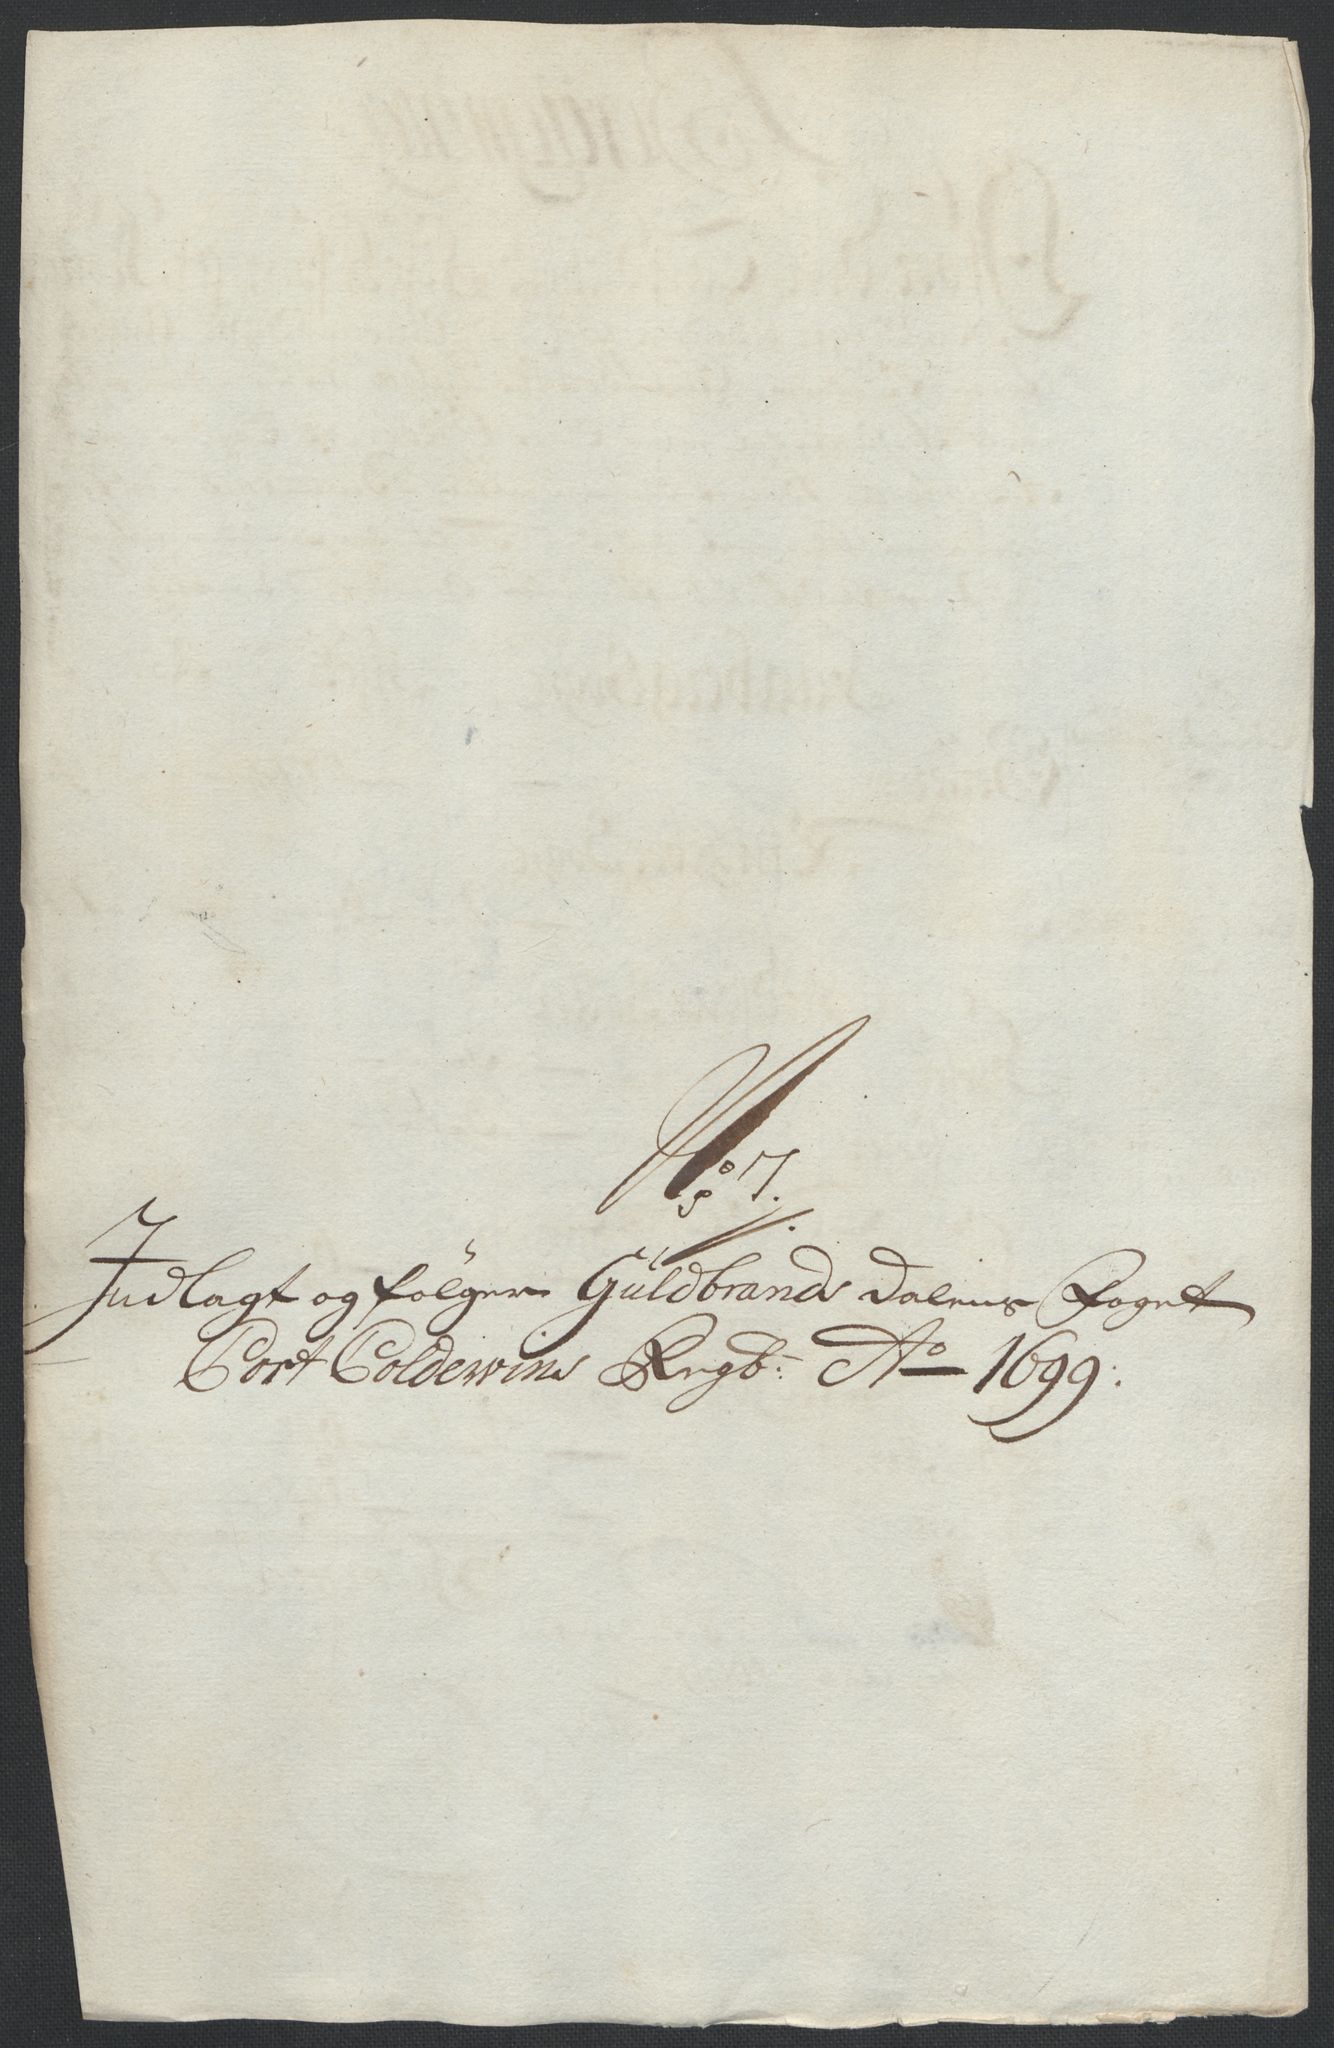 No 7.
Indlagt og følger Guldbrands dalens Foget
Cort Coldewins Regb: Ao 1699: